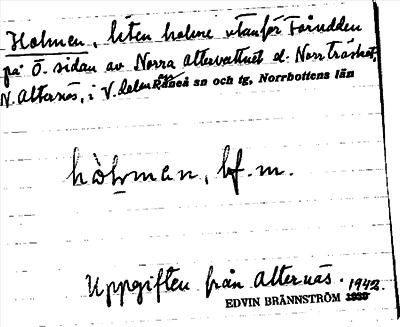 Holmen, liten holme utanför Fårudden
på Ö. sidan av Norra Altervattnet el. Norrträsket,
N. Alternäs, i V. delen Råneå sn och tg, Norrbottens län
hòl̥man, bf. m.
Uppgiften från Alternäs. 1942.
EDVIN BRÄNNSTRÖM 1939